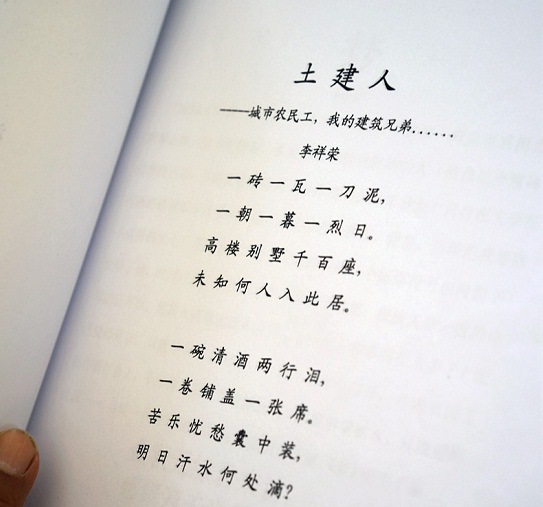 土建人
——城市农民工，我的建筑兄弟......
李祥荣
一砖一瓦一刀泥，
一朝一暮一烈日。
高楼别墅千百座，
未知何人入此居。
一碗清酒两行泪，
一卷铺盖一张席。
苦乐忧愁囊中装，
明日汗水何处滴？